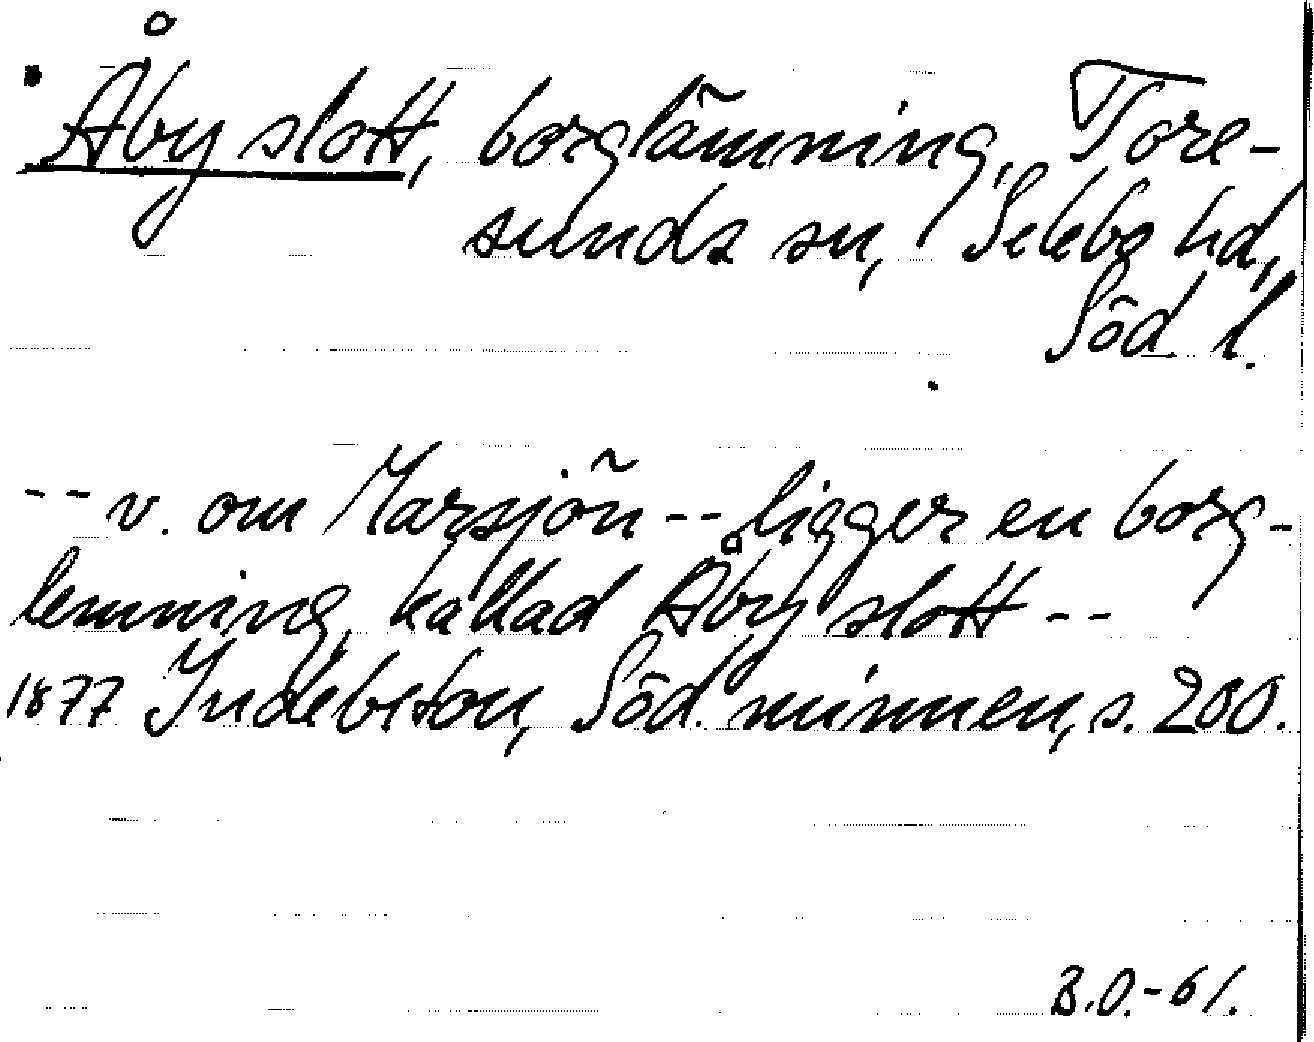 Åby slott, borglämning, Tore-
sunds sn, Selebo hd,
Söd. l.
-- v. om Marsjön -- ligger en borg-
lemning, kallad Åby slott --
1877 Indebetou, Söd. minnen, s. 200.
B.O.-61.